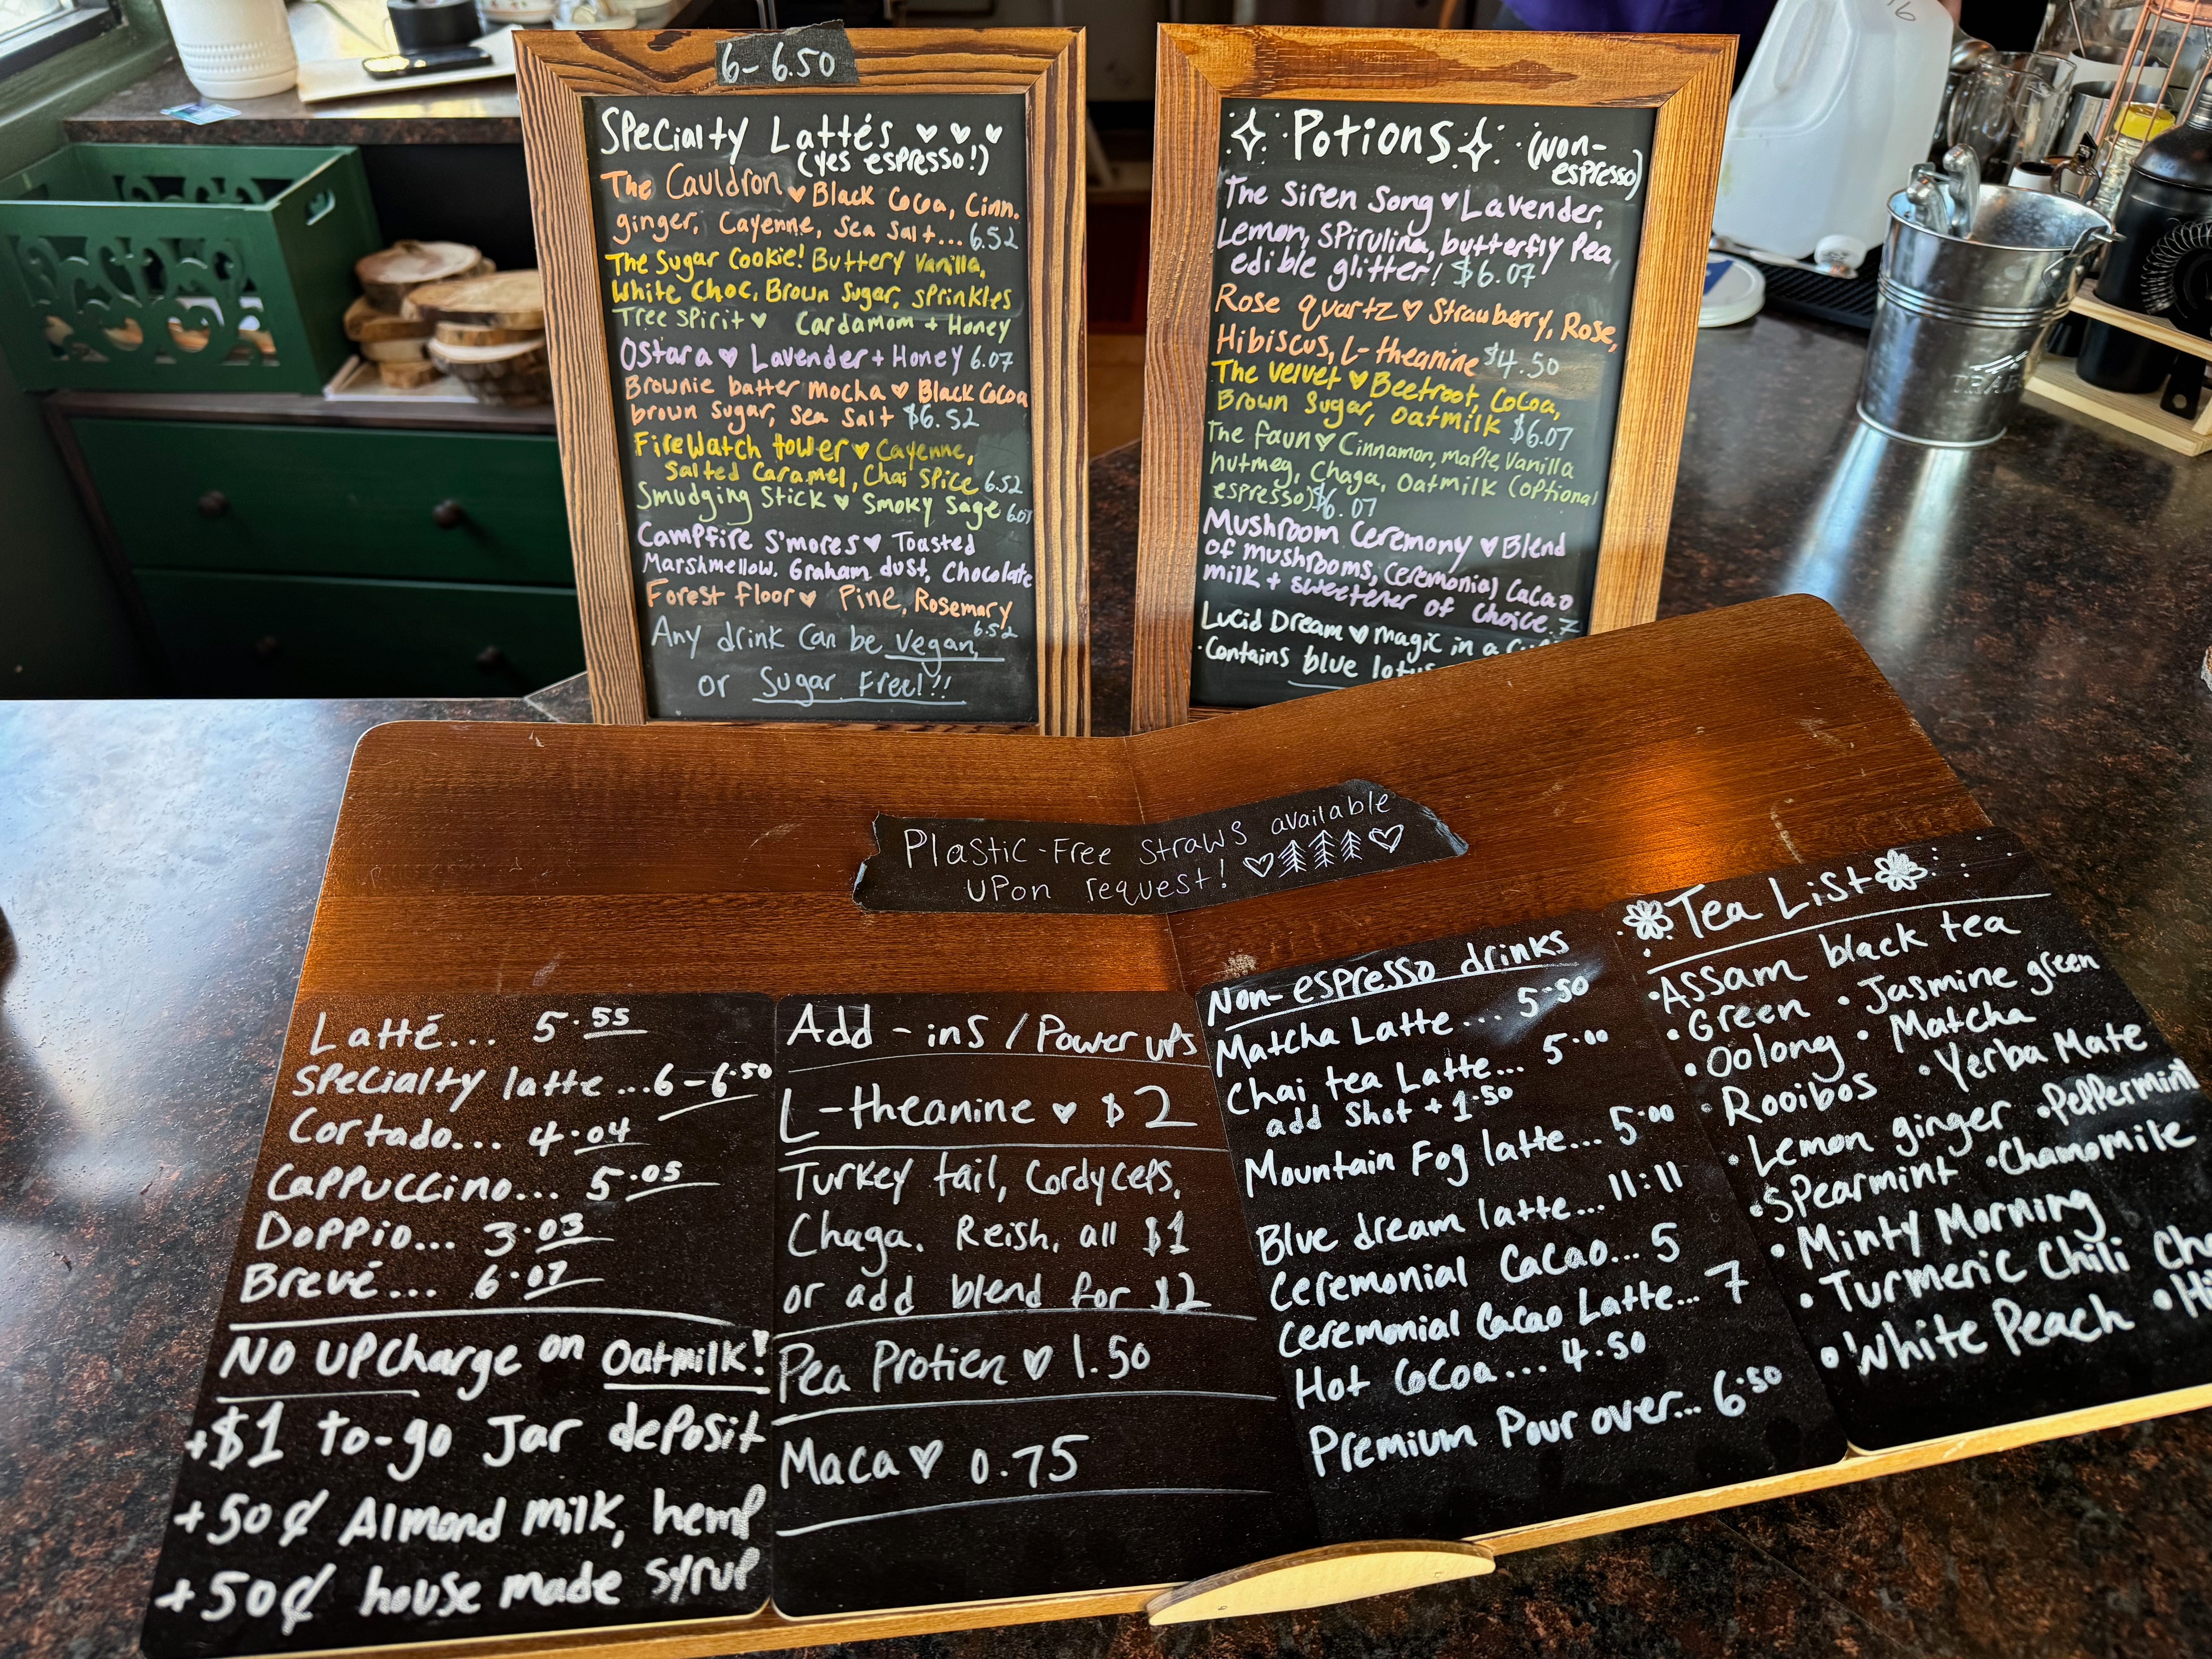 6-6.50
Specialty Lattés
(yes espresso!)
The Cauldron Black Cocoa, Cinn.
ginger, Cayenne, Sea Salt... 6.52
The Sugar Cookie! Buttery Vanilla,
White Choc, Brown Sugar, sprinkles
Tree Spirit Cardamom + Honey
Ostara Lavender + Honey 6.07
Brownie batter mocha Black Cocoa
brown Sugar, Sea Salt $6.52
FireWatch tower Cayenne,
Salted Caramel, Chai Spice 6.52
Smudging Stick Smoky Sage 6.07
Campfire S'mores Toasted
Marshmellow, Graham dust, Chocolate
Forest floor Pine, Rosemary
6.52
Any drink can be vegan,
or Sugar Free!!!
Potions (Non-
espresso)
The Siren Song Lavender,
Lemon, Spirulina, butterfly Pea,
edible glitter! $6.07
Rose quartz Strawberry, Rose,
Hibiscus, L-theanine $4.50
The Velvet Beetroot, Cocoa,
Brown Sugar, Oatmilk $6.07
The faun Cinnamon, maple, Vanilla
nutmeg, Chaga, Oatmilk (optional
espresso) $6.07
Mushroom Ceremony Blend
of mushrooms, Ceremonial Cacao
milk + sweetener of choice. 7
Lucid Dream magic in a
·Contains blue
Plastic-Free Straws available
upon request!
Latté... 5.55
Specialty latte...6-6.50
Cortado... 4.04
Cappuccino... 5.05
Doppio... 3.03
Brevé... 6.07
No upcharge on Oatmilk!
+$1 to-go Jar deposit
+50¢ Almond milk, hemp
+50¢ house made syrup
Add-ins / Power ups
L-theanine $2
Turkey tail, Cordyceps,
Chaga. Reish, all $1
or add blend for $2
Pea Protien 1.50
Maca 0.75
Non-espresso drinks
Matcha Latte... 5.50
Chai tea Latte... 5.00
add shot + 1.50
Mountain Fog latte... 5.00
Blue dream latte... 11:11
Ceremonial Cacao... 5
Ceremonial Cacao Latte... 7
Hot Cocoa... 4.50
Premium Pour over... 6.50
Tea List
·Assam black tea
·Green ·Jasmine green
·Oolong ·Matcha
·Rooibos ·Yerba Mate
·Lemon ginger ·Peppermint
·Spearmint ·Chamomile
·Minty Morning
·Turmeric Chili
·White Peach